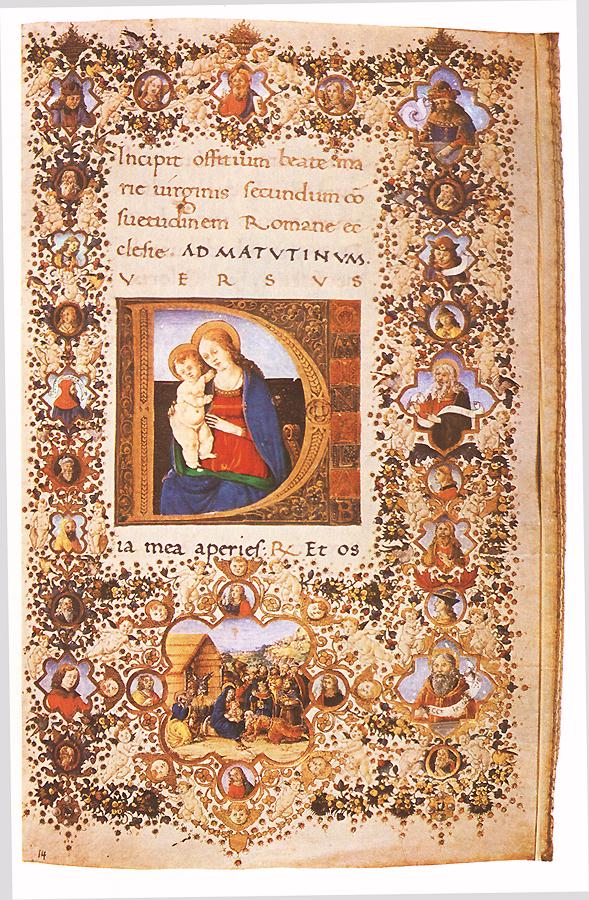 Incipit offitium beate ma
rie uirginis secundum cō
suetudinem Romane ec
clesie. AD MATUTINUM.
V E R S U S
D
ia mea aperies: ℟ Et os
14